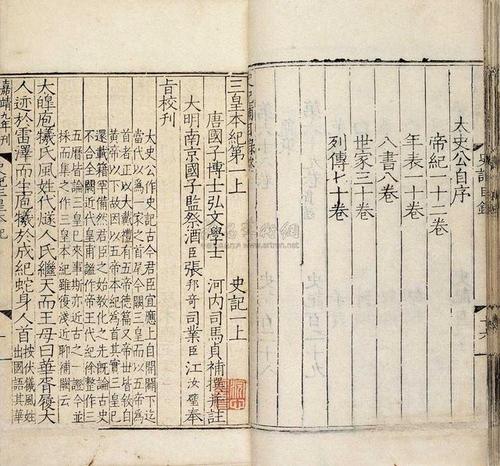 太史公自序
帝紀一十二卷
年表一十卷
八書八卷
世家三十卷
列傳七十卷
三皇本紀第一上 史記一上
唐國子博士弘文學士 河內司馬貞補撰并註
大明南京國子監祭酒臣張邦奇司業臣江汝璧奉
旨校刊
太史公作史記古今君臣宜應上自開闢下迄
當代以爲一家之首尾今闕三皇而以五帝爲
首者正以大戴禮有五帝德篇又帝世皆敘自
黃帝以下故因以五帝本紀爲首其實三皇已
還載籍罕備然君臣之始教化之先既論古史
不合全闕近代皇甫謐作帝王代紀徐整作三
五曆皆論三皇已來事斯亦近古之一證今並
採而集之作三皇本紀雖復淺近聊補闕云
大皞庖犧氏風姓代燧人氏繼天而王母曰華胥履大
人迹於雷澤而生庖犧於成紀蛇身人首按伏犧風姓出國語其華
嘉靖九年刊